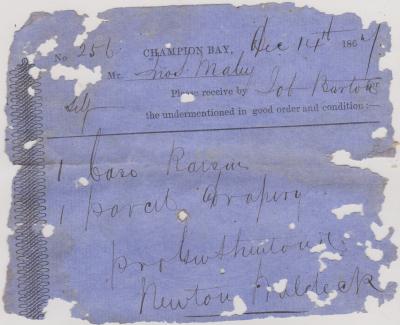 No 256 CHAMPION BAY, Dec 14th 1867
Mr. Jno S. Maley
Please receive by Job Burton
Self
the undermentioned in good order and condition:—
1 Case Raisins
1 parcel Drapery
pro
Newton Waldeck